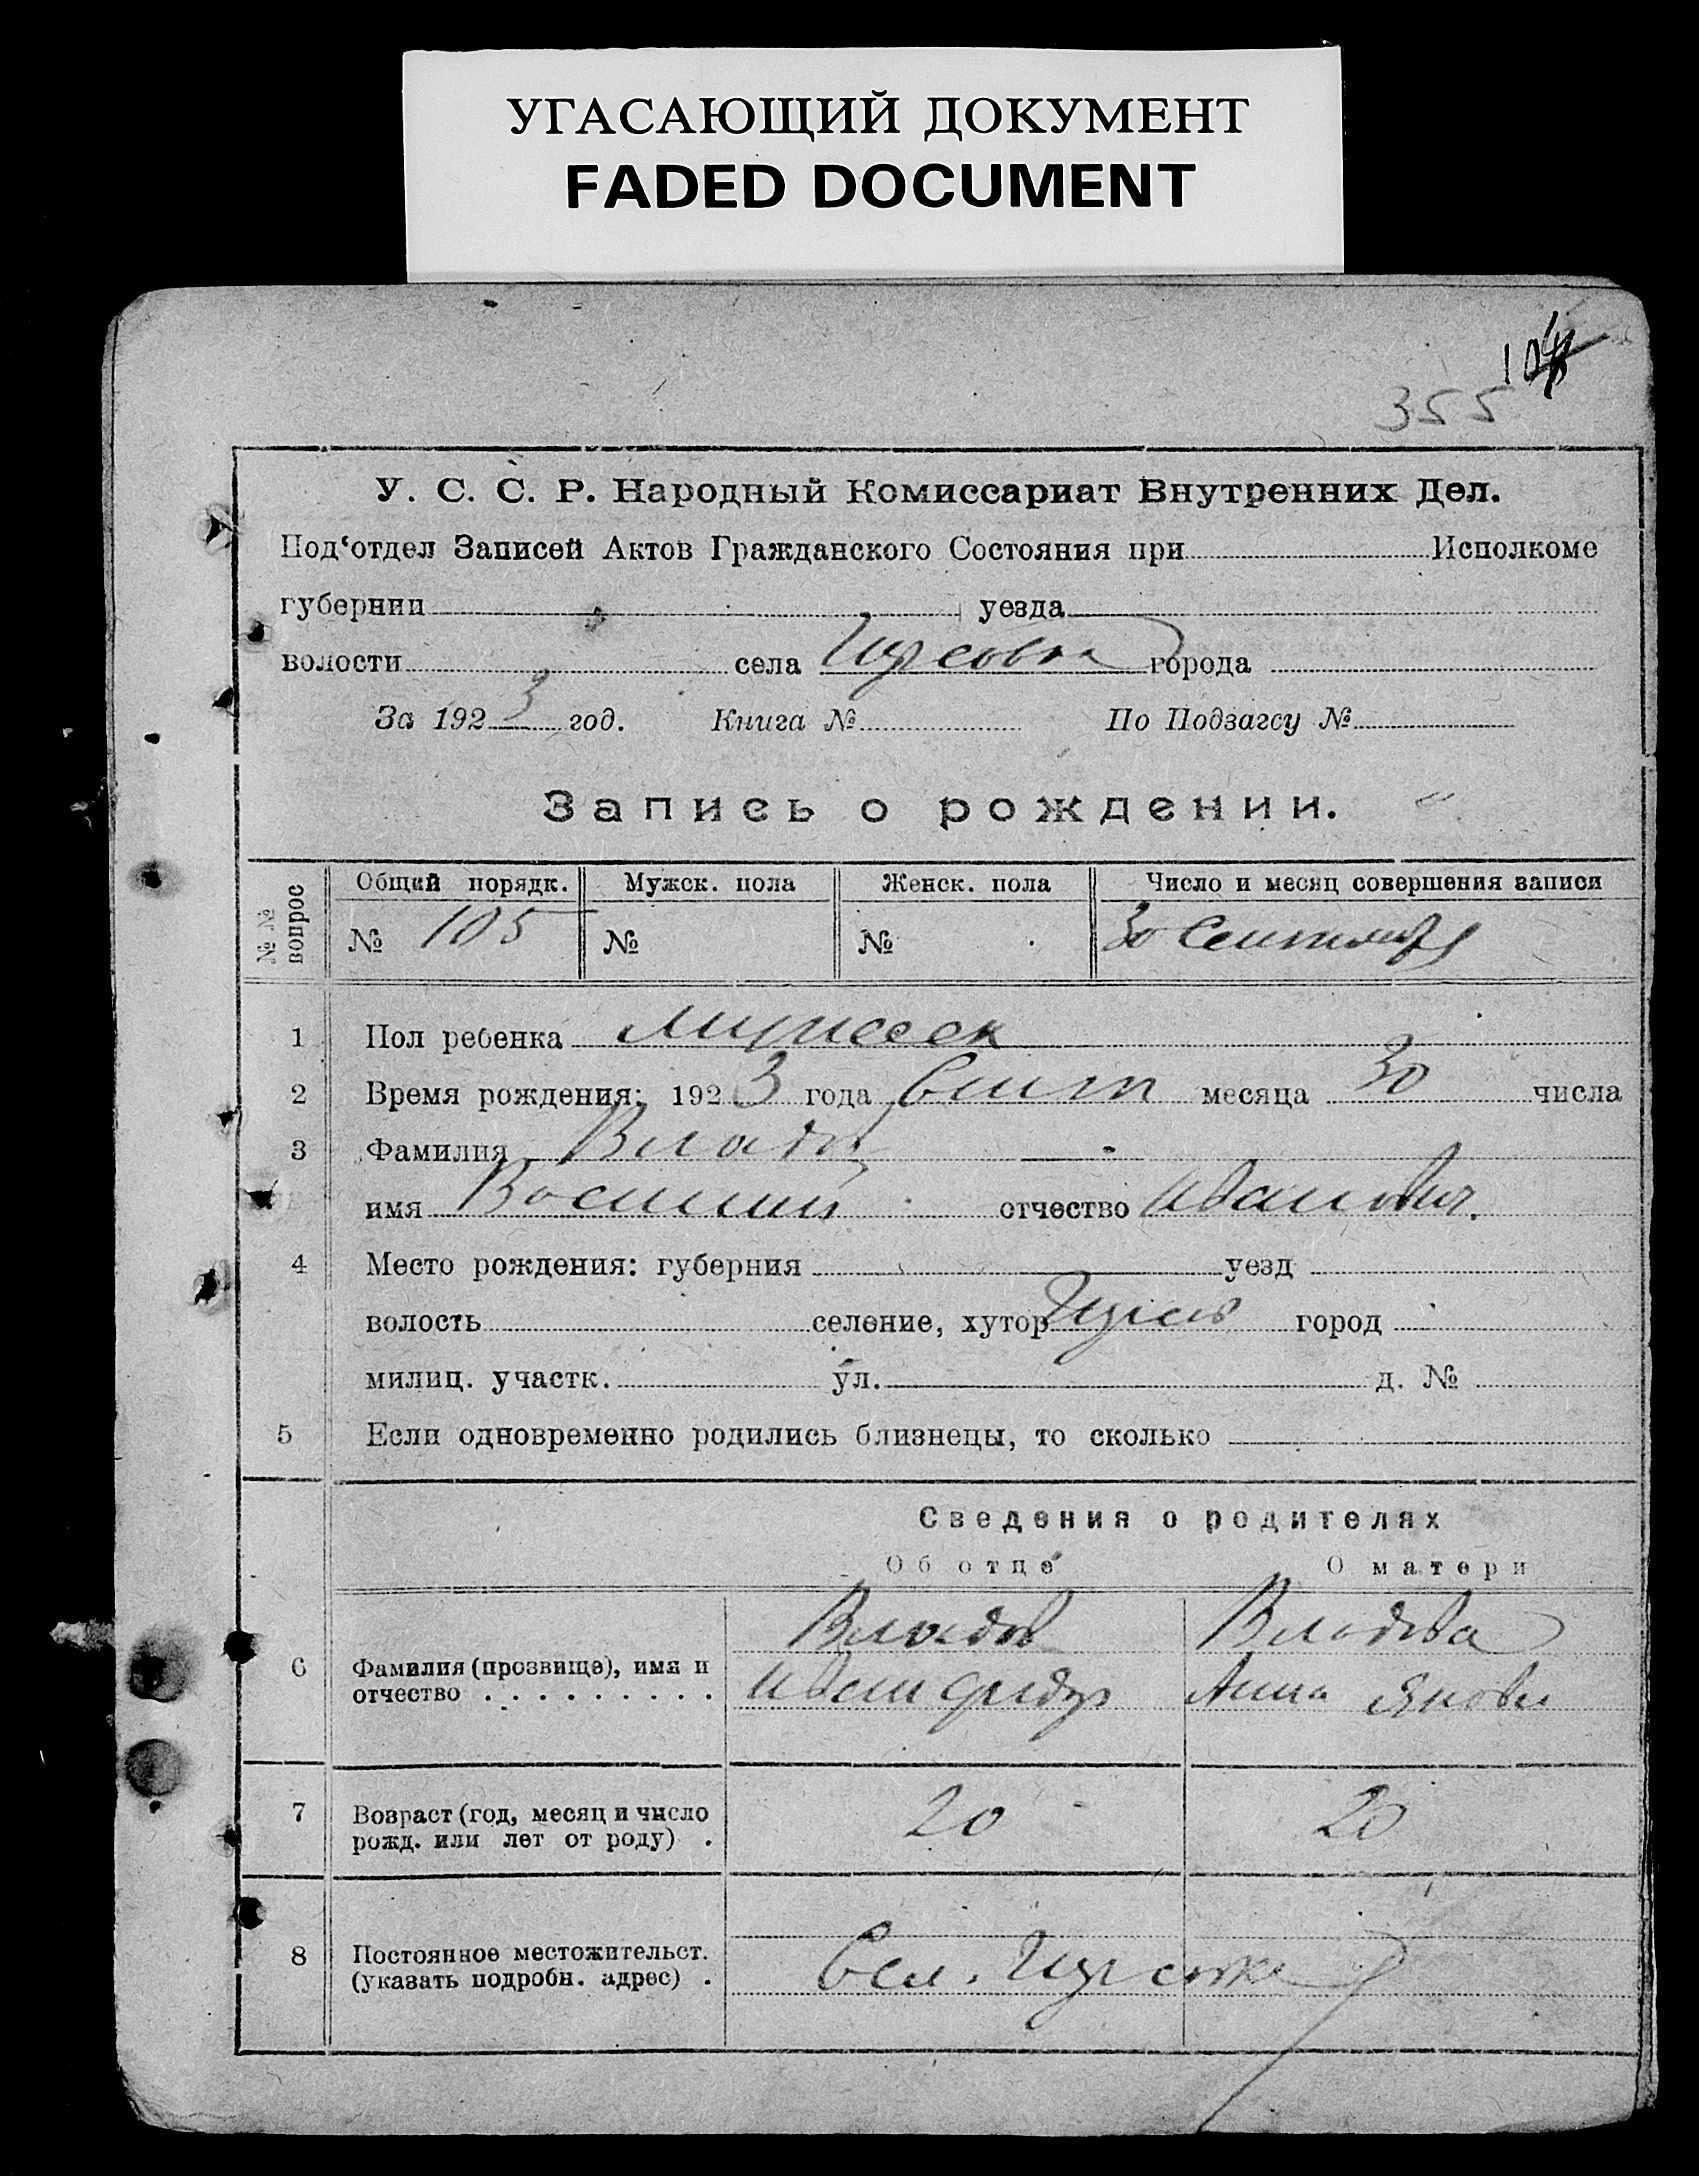 УГАСАЮЩИЙ ДОКУМЕНТ
FADED DOCUMENT
355
У. С. С. Р. Народный Комиссариат Внутренних Дел.
Под‘отдел Записей Актов Гражданского Состояния при Исполкоме
губернии уезда
волости села города
За 1923 год. Книга № По Подзагсу №
Запись о рождении.
№ № вопрос
Общий порядк. Мужск. пола Женск. пола Число и месяц совершения записи
№ 105 № № 30 Сентября
1 Пол ребенка
2 Время рождения: 1923 года Сент месяца 30 числа
3 Фамилия Владов
имя Василий отчество Иванович.
4 Место рождения: губерния уезд
волость селение, хутор город
милиц. участк. ул. д. №
5 Если одновременно родились близнецы, то сколько
Сведения о родителях
Об отце О матери
Владов Владова
6 Фамилия (прозвище), имя и
отчество . . . . . . . . . Иван Анна
7 Возраст (год, месяц и число
рожд. или лет от роду) . 20 20
8 Постоянное местожительст.
(указать подробн. адрес) . Сел.